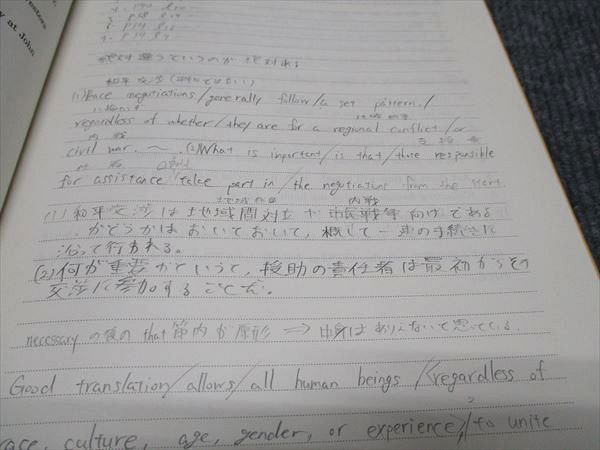 restors
y at John
P18 l19
P19 l7
絶対違うというのが絶対ある
和平交渉
(1)Peace negotiations/generally follow/a set pattern,/
地域紛争
regardless of whether/they are for a regional conflict/or
内戦
civil war. ~ (2)What is important/is that/those responsible
for assistance take part in/the negotiations from the start.
内戦
(1)和平交渉は地域間対立や市民戦争向けである
かどうかはおいておいて,概して一連の手続きに
沿って行われる。
(2)何が重要かというと,援助の責任者は最初からその
交渉に参加することだ。
necessaryの後のthat節内が原形 ⇒ 中身はありえないと思っている.
Good translation/allows/all human beings/<regardless of
race, culture, age, gender, or experience>/to unite